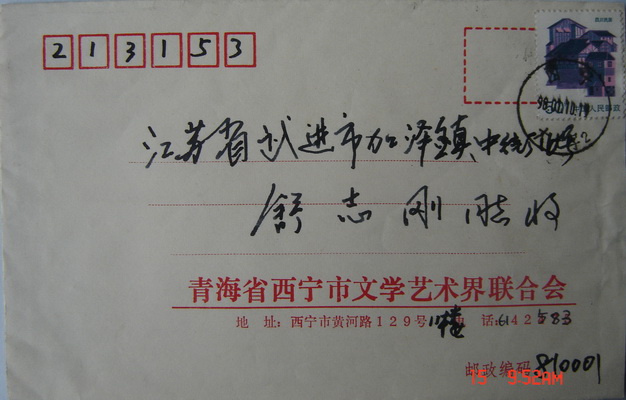 213153
江苏省武进市加泽镇中街
舒志刚 同志收
青海省西宁市文学艺术界联合会
地 址:西宁市黄河路129号11楼 电 话:6142583
邮政编码 810001
15 9:52AM